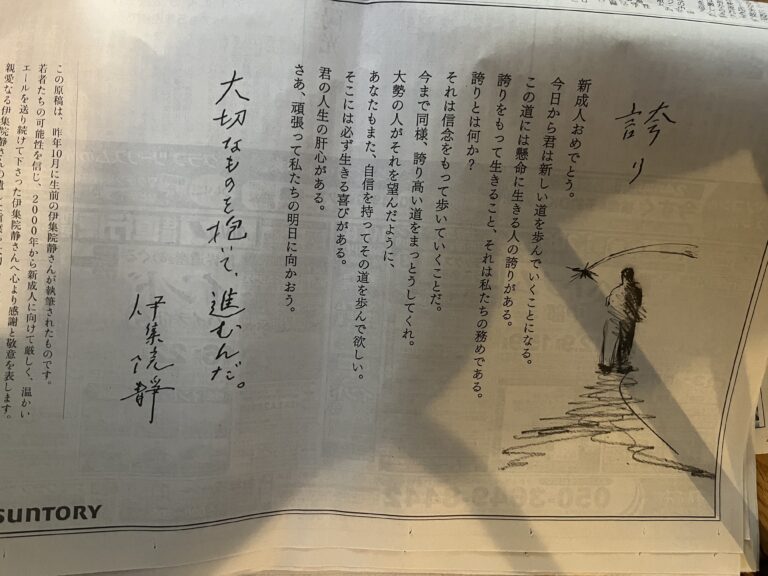 誇り
新成人おめでとう。
今日から君は新しい道を歩んでいくことになる。
この道には懸命に生きる人の誇りがある。
誇りをもって生きること、それは私たちの務めである。
誇りとは何か？
それは信念をもって歩いていくことだ。
今まで同様、誇り高い道をまっとうしてくれ。
大勢の人がそれを望んだように、
あなたもまた、自信を持ってその道を歩んで欲しい。
そこには必ず生きる喜びがある。
君の人生の肝心がある。
さあ、頑張って私たちの明日に向かおう。
大切なものを抱いて、進むんだ。
伊集院静
この原稿は、昨年10月に生前の伊集院静さんが執筆されたものです。
若者たちの可能性を信じ、2000年から新成人に向けて厳しく、温かい
エールを送り続けて下さった伊集院静さんへ心より感謝と敬意を表します。
親愛なる伊集院静さんの
SUNTORY